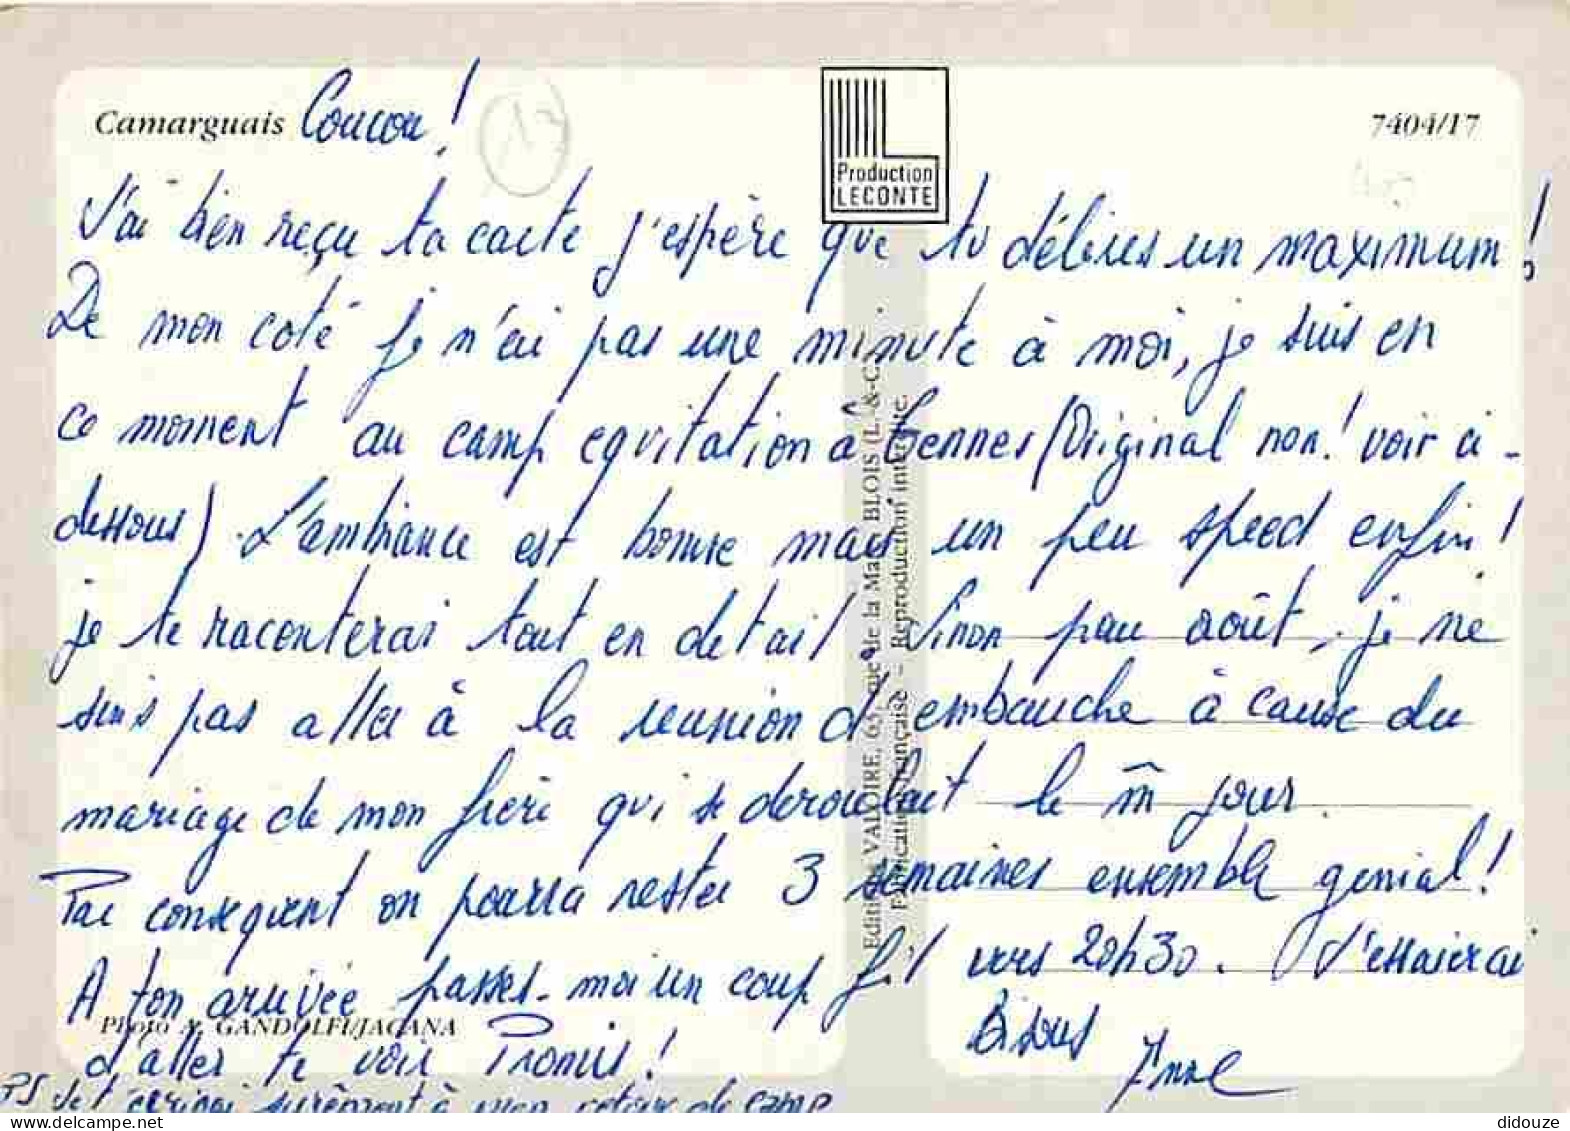 Camarguais Coucou!
7404/17
Production
LECONTE
J'ai bien reçu ta carte j'espère que tu délires un maximum!
De mon coté je n'ai pas une minute à moi, je suis en
ce moment au camp equitation à Gennes (Original non! voir ci-
dessous). L'ambiance est bonne mais un peu speed enfin!
je te raconterai tout en detail Sinon pour août, je ne
suis pas aller à la reunion d'embauche à cause du
mariage de mon frère qui se deroulait le m̂ jour.
Par consequent on pourra rester 3 semaines ensemble genial!
A ton arrivée passes-moi un coup fil vers 20h30. J'essaierai
d'aller te voir Promis! Bisous
Anne
PS Je t'écrirai surêment à mon retour de camp
Photo A. GANDOLFI/JACANA
VALOIRE, 63, rue de la Mare BLOIS (L.-&-C.)
Fabrication française - Reproduction interdite.